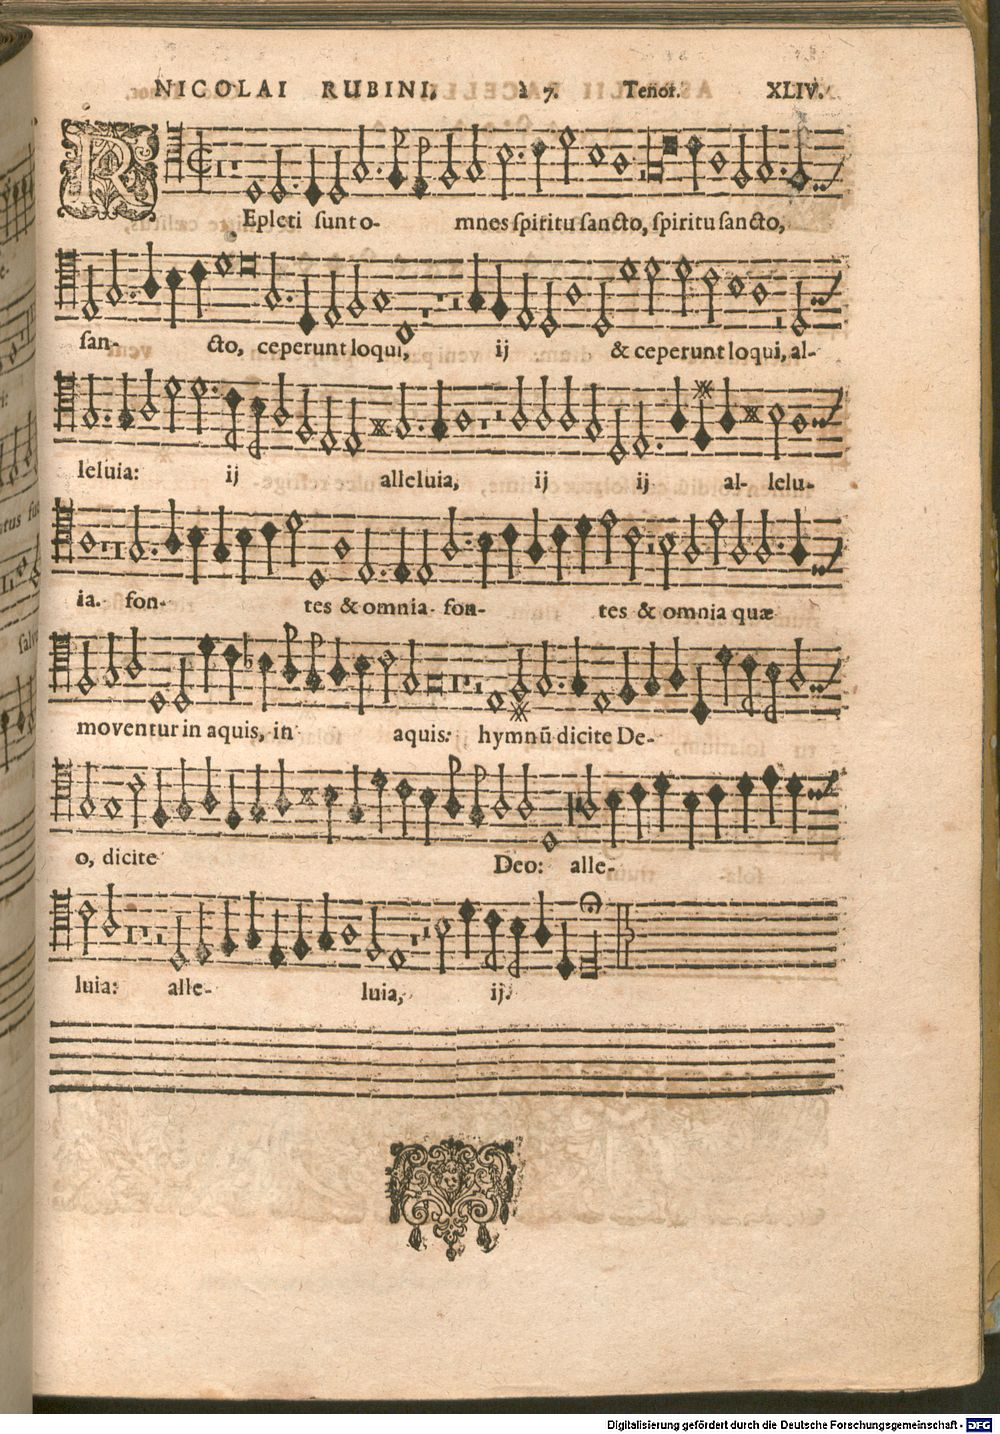 NICOLAI RUBINI, à 7. Tenor. XLIV.
REpleti sunt o- mnes spiritu sancto, spiritu sancto,
san- cto, ceperunt loqui, ij & ceperunt loqui, al-
leluia: ij alleluia, ij ij al- lelu-
ia. fon- tes & omnia. fon- tes & omnia quæ
moventur in aquis, in aquis: hymnũ dicite De-
o, dicite Deo: alle-
luia: alle- luia, ij.
Digitalisierung gefördert durch die Deutsche Forschungsgemeinschaft - DFG